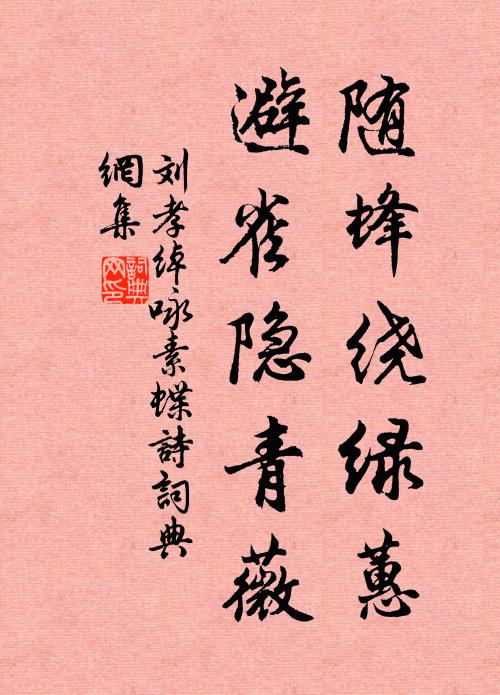 随蜂绕绿蕙
避雀隐青薇
刘孝绰咏素蝶詩詞典
網集
詞典网印